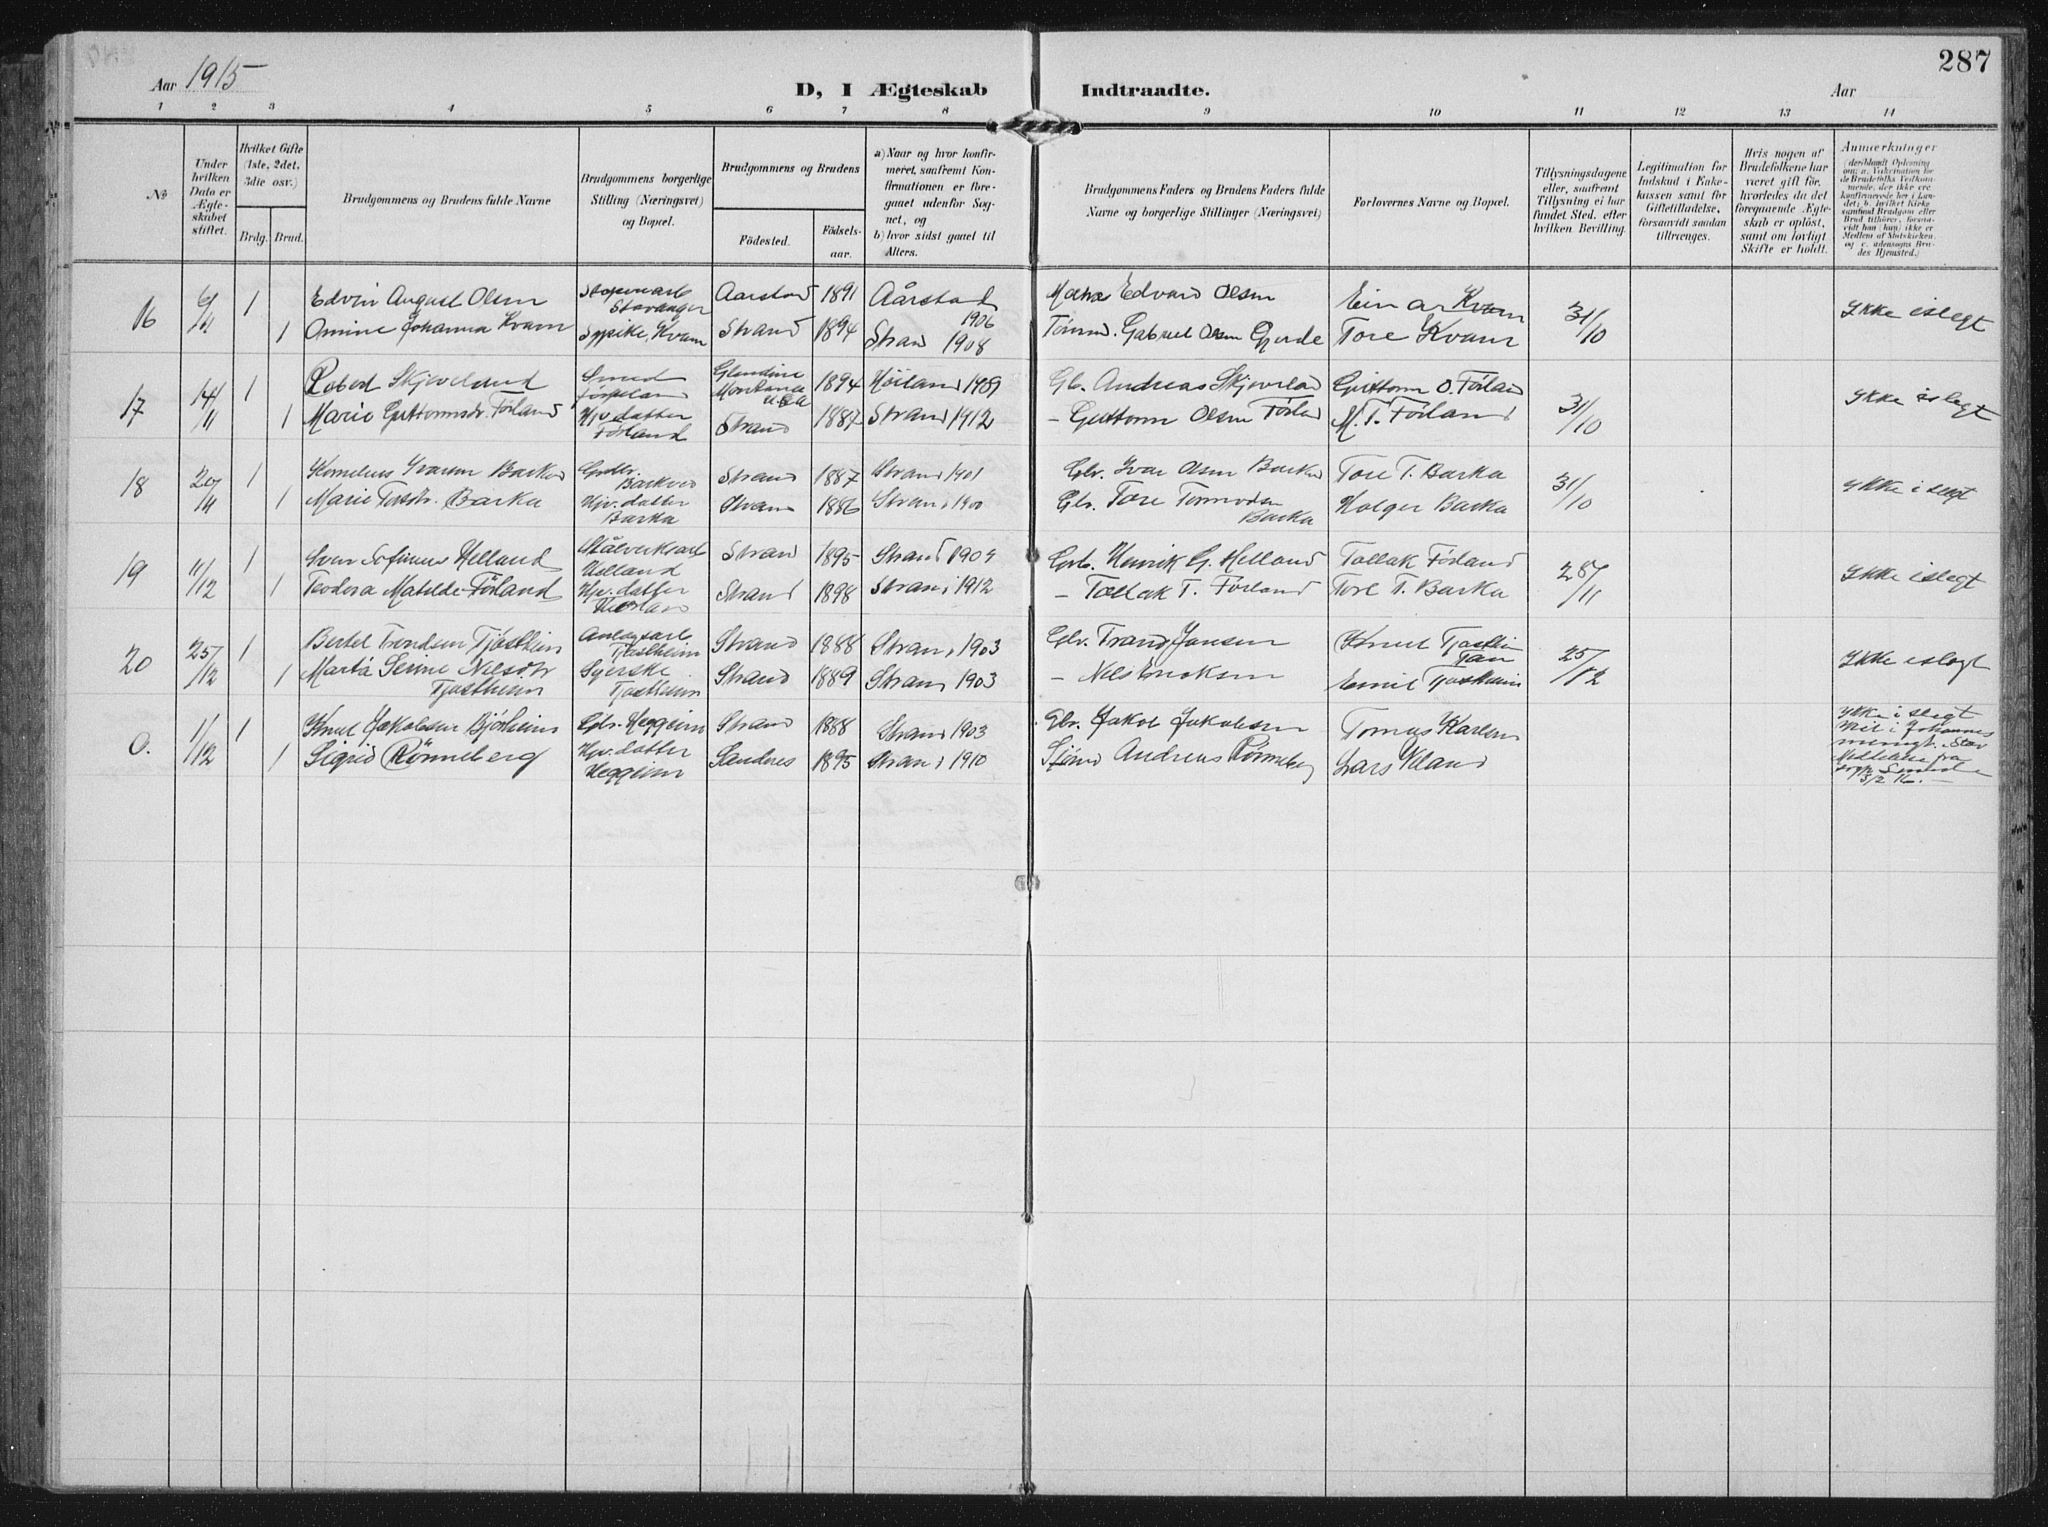 Aar 1915
D, I Ægteskab Indtraadte.
287
Aar
1 2 3 4 5 6 7 8 9 10 11 12 13 14
No
Under hvilken Dato er Ægteskabet stiftet.
Hvilket Gifte (1ste, 2det, 3die osv.)
Brdg. Brud.
Brudgommens og Brudens fulde Navne
Brudgommens borgerlige Stilling (Næringsvei) og Bopæl.
Brudgommens og Brudens
Födested.
Födselsaar.
a) Naar og hvor konfirmeret, saafremt Konfirmationen er foregaaet udenfor Sognet, og
b) hvor sidst gaaet til Alters.
Brudgommens Faders og Brudens Faders fulde Navne og borgerlige Stillinger (Næringsvei)
Forlovernes Navne og Bopæl.
Tillysningsdagene eller, saafremt Tillysning ei har fundet Sted, efter hvilken Bevilling.
Legitimation for Indskud i Enkekassen samt for Giftetilladelse, forsaavidt saadan tiltrænges.
Hvis nogen af Brudefolkene har været gift för, hvorledes da det foregaaende Ægteskab er oplöst, samt om lovligt Skifte er holdt.
Anmærkninger
16 6/11 1 Edvin August Olsen Stavanger Aarstad 1891 Aårstad 1906 Edvard Olsen Einar Kvam 31/10 Ikke i slegt
1 Amine Johanna Kvam Sypike, Kvam Strand 1894 Strand 1908 Gabriel Olsen Gjerde Tore Kvam
17 14/11 1 Robert Skjeveland Smed Jørpeland Glendine Montana U.S.A 1894 Höiland 1909 Gb. Andreas Skjeveland Guttorm O. Førland 31/10 Ikke i slegt
1 Marie Guttormsdr. Førland Hjv. datter Førland Strand 1887 Strand 1912 – Guttorm Olsen Førland M. T. Førland
18 20/11 1 Kornelius Ivarsen Barkved Barkved Strand 1887 Strand 1901 Gbr. Ivar Olsen Barkved Tore T. Barka 31/10 Ikke i slegt
1 Marie Torsdr. Barka Hjv. datter Barka Strand 1886 Strand 1900 Gbr. Tore Tormodsen Barka Holger Barka
19 11/12 1 Sven Sofinus Helland Stålverksarb Helland Strand 1895 Strand 1909 Gbr. Henrik G. Helland Tallak Førland 28/11 Ikke i slegt
1 Teodora Matilde Førland Hjv. datter Strand 1898 Strand 1912 – Tallak T. Førland Tore T. Barka
20 25/12 1 Bertel Trondsen Tjøstheim Anlegsarb Tjøstheim Strand 1888 Strand 1903 Gbr. Trond Jansen Knut Tjøstheim 25/12 Ikke i slegt
1 Marta Serine Nilsdtr Tjøstheim Syerske Tjøstheim Strand 1889 Strand 1903 – Nils Eriksen Emil Tjøstheim
0. 1/12 1 Knut Jakobsen Bjørheim Gbr. Heggeim Strand 1888 Strand 1903 Gbr. Jakob Jakobsen Tomas Karlsen Ikke i slegt
1 Sigrid Rönneberg Hjv. datter Heggeim Sandnes 1895 Strand 1910 Andreas Rönneberg Lars Veland Viet i Johannes menigh. i Stav Meddelelse fra 3/2 16.